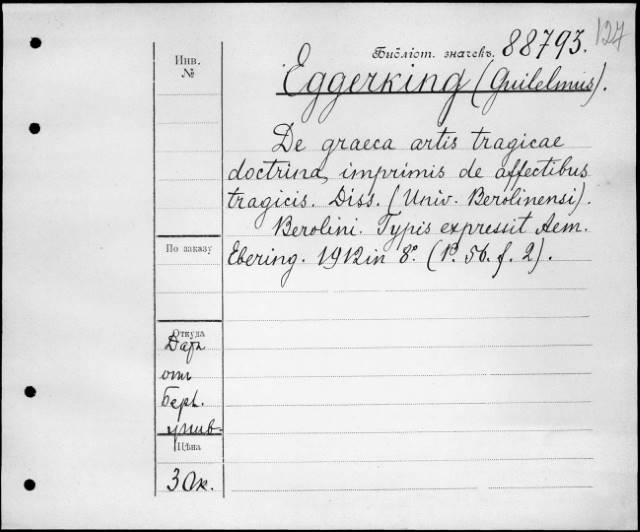 127
Библіот. значекъ. 88793.
Инв. №
Eggerking (Guilelmus).
De graeca artis tragicae
doctrina, imprimis de affectibus
tragicis. Diss. (Univ. Berolinensi).
Berolini. Typis expressit Aem.
По заказу
Ebering. 1912 in 8°. (P. 56. f. 2).
Откуда
Даръ
отъ
Берл.
унив.
Цѣна
30к.